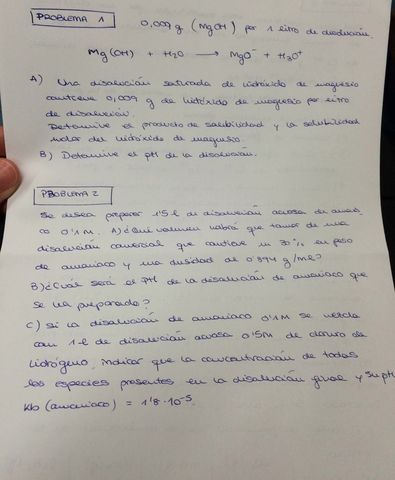 PROBLEMA 1
0,009 g (MgOH) por 1 litro de disolución.
Mg(OH) + H2O → MgO⁻ + H3O⁺
A) Una disolución saturada de hidróxido de magnesio
contiene 0,009 g de hidróxido de magnesio por litro
de disolución.
Determine el producto de solubilidad y la solubilidad
molar del hidróxido de magnesio.
B) Determine el pH de la disolución.
PROBLEMA 2
Se desea preparar 1'5 l de disolución acuosa de amonía
co 0'1M. A) ¿Qué volumen habrá que tomar de una
disolución comercial que contiene un 30% en peso
de amoniaco y una densidad de 0'894 g/ml?
B) ¿Cuál será el pH de la disolución de amoniaco que
se ha preparado?
C) Si la disolución de amoniaco 0'1M se mezcla
con 1 l de disolución acuosa 0'5M de cloruro de
hidrógeno, indicar que la concentración de todas
las especies presentes en la disolución final y su pH
Kb (amoniaco) = 1'8·10⁻⁵.